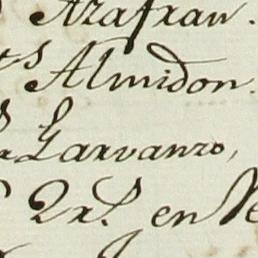 Azafran.
ts Almidon.
Garvanzo,
2rs. en Ve